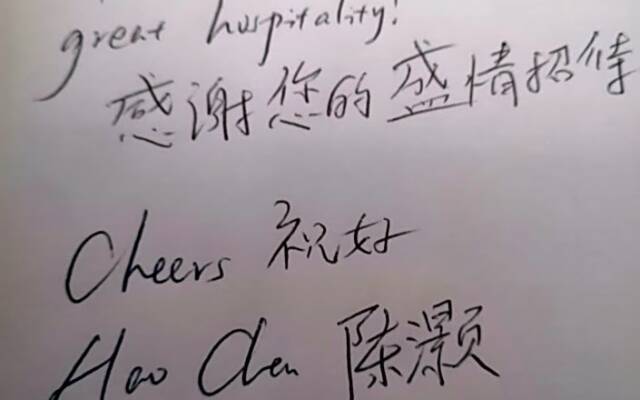 great hospitality!
感谢您的盛情招待
Cheers 祝好
Hao Chen 陈灏